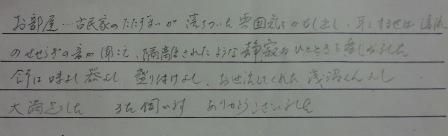 お部屋…古民家のたたずまいが落ちついた雰囲気をかもし出し、耳をすませば清流
のせせらぎの音が聞こえ、隔離されたような静寂のひとときを楽しめました
食事は味よし 器よし 盛り付けよし、お世話してくれた 浅沼くんよし
大満足でした また伺います ありがとうございました